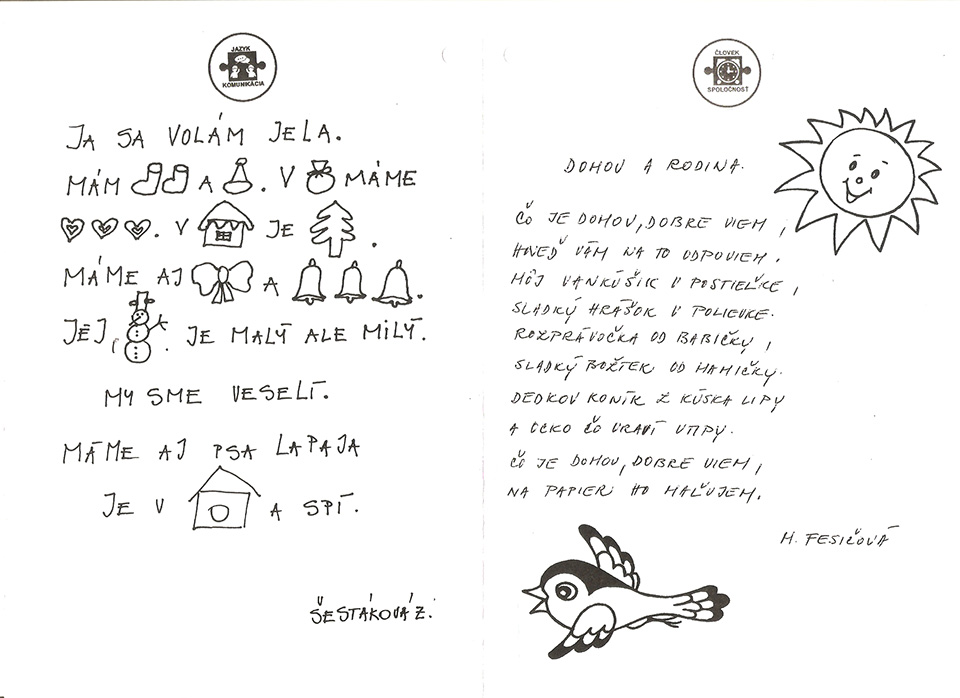 JAZYK
KOMUNIKÁCIA
JA SA VOLÁM JELA.
MÁM A . V MÁME
. V JE .
MÁME AJ A .
JÉJ, . JE MALÝ ALE MILÝ.
MY SME VESELÍ.
MÁME AJ PSA LAPAJA
JE V A SPÍ.
ŠESTÁKOVÁ Z.
ČLOVEK
SPOLOČNOSŤ
DOMOV A RODINA.
ČO JE DOMOV, DOBRE VIEM,
HNEĎ VÁM NA TO ODPOVIEM.
MÔJ VANKÚŠIK V POSTIEĽKE,
SLADKÝ HRÁŠOK V POLIEVKE.
ROZPRÁVOČKA OD BABIČKY,
SLADKÝ BOŽTEK OD MAMIČKY.
DEDKOV KONÍK Z KÚSKA LIPY
A OCKO ČO VRAVÍ VTIPY.
ČO JE DOMOV, DOBRE VIEM,
NA PAPIER HO MAĽUJEM.
M. FESIČOVÁ